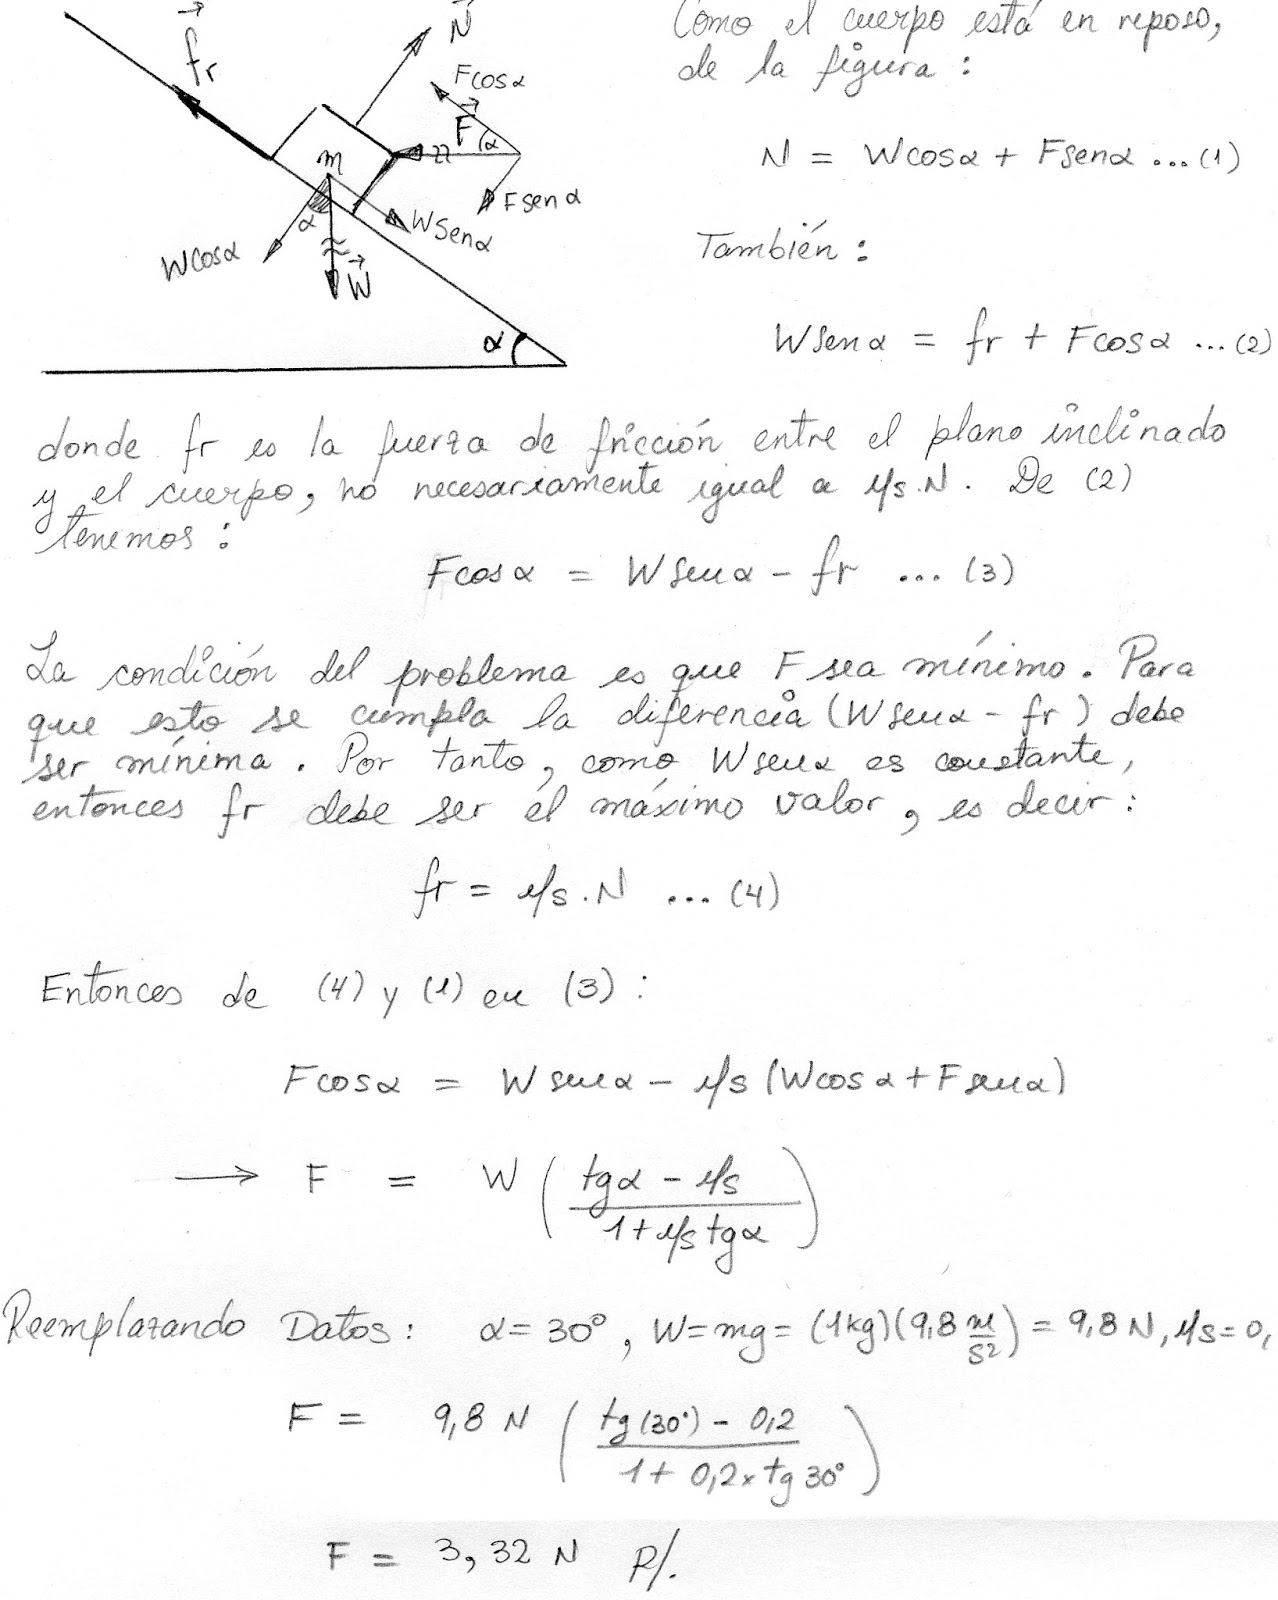 Como el cuerpo está en reposo,
de la figura:
N = Wcosα + Fsenα ...(1)
También:
Wsenα = fr + Fcosα ...(2)
fr
N
Fcosα
F
α
m
Fsenα
α
Wsenα
Wcosα
W
α
donde fr es la fuerza de fricción entre el plano inclinado
y el cuerpo, no necesariamente igual a μs.N. De (2)
tenemos:
Fcosα = Wsenα - fr ... (3)
La condición del problema es que F sea mínimo. Para
que esto se cumpla la diferencia (Wsenα - fr) debe
ser mínima. Por tanto, como Wsenα es constante,
entonces fr debe ser el máximo valor, es decir:
fr = μs.N ... (4)
Entonces de (4) y (1) en (3):
Fcosα = Wsenα - μs (Wcosα + Fsenα)
→ F = W ( tgα - μs / 1 + μs tgα )
Reemplazando Datos: α = 30°, W = mg = (1kg)(9,8 m/s²) = 9,8 N, μs = 0,
F = 9,8 N ( tg(30°) - 0,2 / 1 + 0,2 x tg 30° )
F = 3,32 N R/.